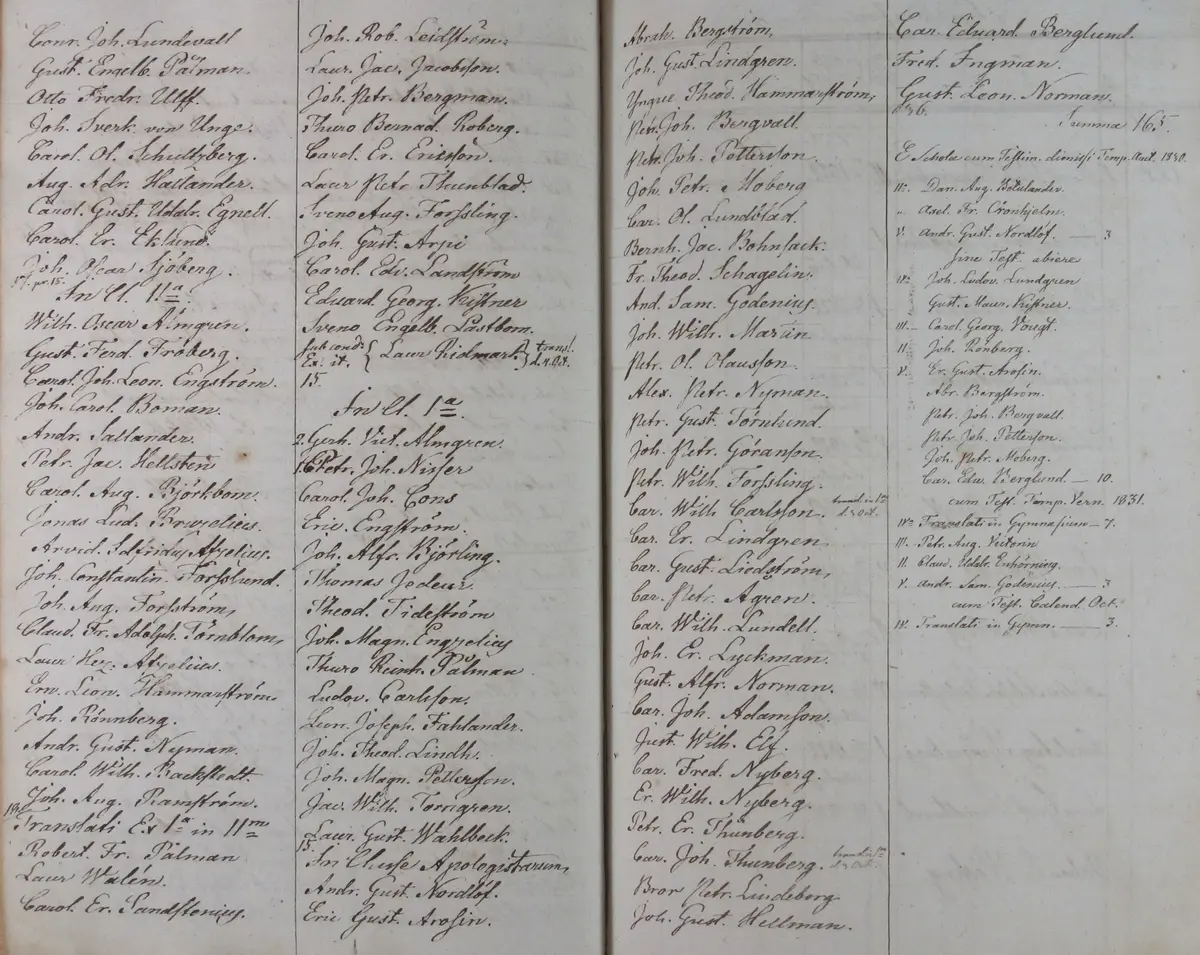 Conr. Joh. Lundevall
Gust. Engelb. Pålman.
Otto Fredr. Ulff.
Joh. Sverk. von Unge.
Carol. Ol. Schultzberg.
Aug. Adr. Hallander.
Carol. Gust. Uddr. Egnell.
Carol. Er. Eklund.
Joh. Oscar Sjöberg.
17. pr. 15.
In Cl. IIa
Wilh. Oscar Almgren.
Gust. Ferd. Fröberg.
Carol. Joh. Leon. Engström.
Joh. Carol. Boman.
Andr. Sallander.
Petr. Jac. Hellsten
Carol. Aug. Björkbom.
Jonas Lud. Bruzelius.
Arvid. Sdfridus Afzelius.
Joh. Constantin. Forsslund.
Joh. Aug. Forsström,
Claud. Fr. Adolph. Törnblom,
Laur. Afzelius.
Ern. Leon. Hammarström.
Joh. Rönnberg.
Andr. Gust. Nyman.
Carol. Wilh. Backstedt.
Joh. Aug. Ramström.
Translati Ex Ia in IIm
Robert. Fr. Pålman
Laur Walén.
Carol. Er. Sandstenius.
Joh. Rob. Leidström,
Laur. Jac. Jacobsson.
Joh. Petr. Bergman.
Thuro Bernad. Roberg.
Carol. Er. Ericsson.
Laur Petr Thunblad.
Sveno Aug. Forssling.
Joh. Gust. Arpi
Carol. Edv. Landström
Eduard. Georg. Kistner
Sveno Engelb. Lastbom.
sub cond. Ex. it. { Laur Ridmark } transl. d. 4. Oct.
15.
In Cl. Ia
2. Gerh. Vict. Almgren.
Petr. Joh. Nisser
Carol. Joh. Cons
Eric. Engström.
Joh. Alfr. Björling.
Thomas Jedeur.
Theod. Tideström
Joh. Magn. Engzelius
Thuro Reinh. Pålman
Ludov. Carlsson.
Leon. Joseph. Fahlander.
Joh. Theod. Lindh.
Joh. Magn. Pettersson.
Jac. Wilh. Torngren.
Laur. Gust. Wahlbeck.
15.
In Classe Apologistarum,
Andr. Gust. Nordlöf.
Eric Gust. Arosin.
Abrah. Bergström,
Joh. Gust. Lindgren.
Yngue Theod. Hammarström,
Petr. Joh. Bergvall.
Petr. Joh. Petterson.
Joh. Petr. Moberg
Car. Ol. Lundblad.
Bernh. Jac. Bohnsack.
Fr. Theod. Schagelin.
And. Sam. Godenius.
Joh. Wilh. Martin
Petr. Ol. Olausson.
Alex. Petr. Nyman.
Petr. Gust. Törnlund.
Joh. Petr. Göranson.
Petr. Wilh. Forssling.
Car. Wilh Carlsson.
Car. Er. Lindgren.
Car. Gust. Liedström,
Car. Petr. Agren.
Car. Wilh. Lundell.
Joh. Er. Lyckman.
Gust. Alfr. Norman.
Car. Joh. Adamson.
Just. Wilh. Ely.
Car. Fred. Nyberg.
Er. Wilh. Nyberg.
Petr. Er. Thunberg.
Car. Joh. Thunberg.
Bror Petr. Lindeborg.
Joh. Gust. Hellman.
Car. Eduard. Berglund.
Fred. Ingman.
Gust. Leon. Norman.
36.
Summa 165.
E Schola cum Testim. dimissi Temp. Aut. 1830.
III. Dan. Aug. Bökelander.
" Axel. Fr. Cronhjelm.
V. Andr. Gust. Nordlöf. — 3
sine Test. abiere
IV. Joh. Ludov. Lundgren
Gust. Maur. Kistner.
III. Carol. Georg. Voigt.
II. Joh. Rönberg.
V. Er. Gust. Arosin.
Abr. Bergström.
Petr. Joh. Bergvall.
Petr. Joh. Petterson.
Joh. Petr. Moberg.
Car. Edv. Berglund — 10.
cum Test. Temp. Vern. 1831.
IV. Translati in Gymnasium — 7.
III. Petr. Aug. Victorin
II. Claud. Uddr. Enhörning.
V. Andr. Sam. Godenius. — 3
cum Test. Calend. Oct.
IV. Translati in Gymn. — 3.